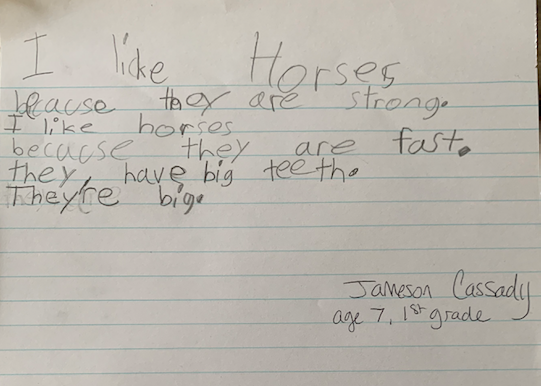 I like Horses
because they are strong.
I like horses
because they are fast.
they, have big teeth.
They're big.
Jameson Cassady
age 7, 1st grade